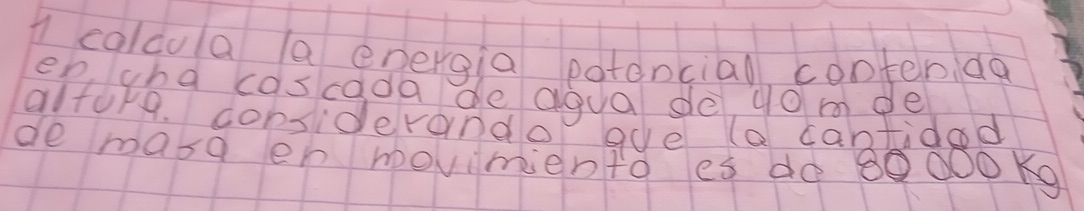 1 calcula la energia potencial contenida
en una cascada de agua de 40 m de
altura. considerando que la cantidad
de masa en movimiento es de 80 000 Kg